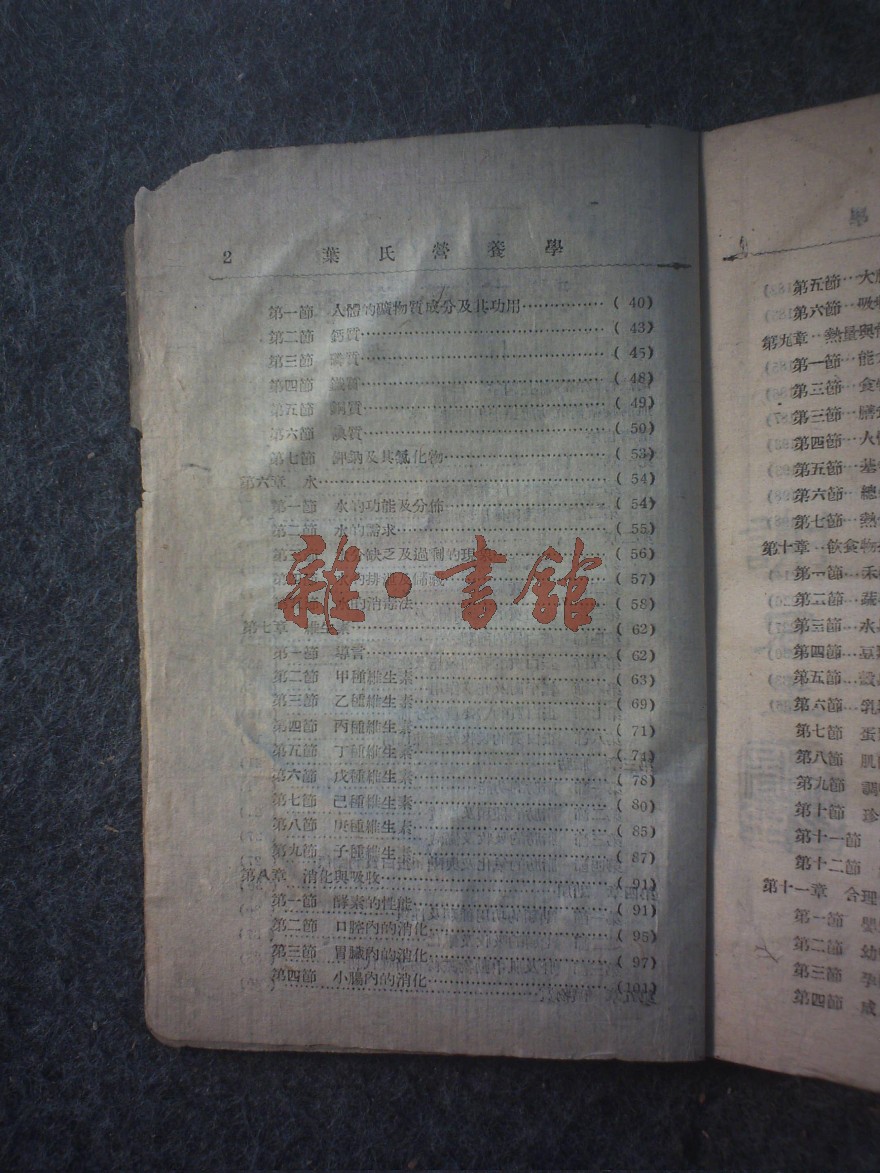 2 葉氏營養學
第一節 人體的礦物質成分及其功用……………( 40)
第二節 鈣質……………( 43)
第三節 磷質……………( 45)
第四節 鐵質……………( 48)
第五節 銅質……………( 49)
第六節 碘質……………( 50)
第七節 鉀鈉及其氯化物……………( 53)
第六章 水……………( 54)
第一節 水的功能及分佈……………( 54)
第二節 水的需求……………( 55)
水分缺乏及過剩的現……………( 56)
水的排泄及儲藏……………( 57)
水的消毒法……………( 58)
第七章 維生素……………( 62)
第一節 導言……………( 62)
第二節 甲種維生素……………( 63)
第三節 乙種維生素……………( 69)
第四節 丙種維生素……………( 71)
第五節 丁種維生素……………( 74)
第六節 戊種維生素……………( 78)
第七節 己種維生素……………( 80)
第八節 庚種維生素……………( 85)
第九節 子種維生素……………( 87)
第八章 消化與吸收……………( 91)
第一節 酵素的性能……………( 91)
第二節 口腔內的消化……………( 95)
第三節 胃臟內的消化……………( 97)
第四節 小腸內的消化……………(101)
雜·書館
第五節 大
第六節 吸
第九章 熱量與
第一節 能
第三節 食
第三節 膳
第四節 人
第五節 基
第六節 總
第七節 熱
第十章 飲食物
第一節 禾
第二節 蔬
第三節 水
第四節 豆
第五節
第六節 乳
第七節 蛋
第八節 肌
第九節 調
第十節 珍
第十一節
第十二節
第十一章 合理
第一節 嬰
第二節 幼
第三節 孕
第四節 成